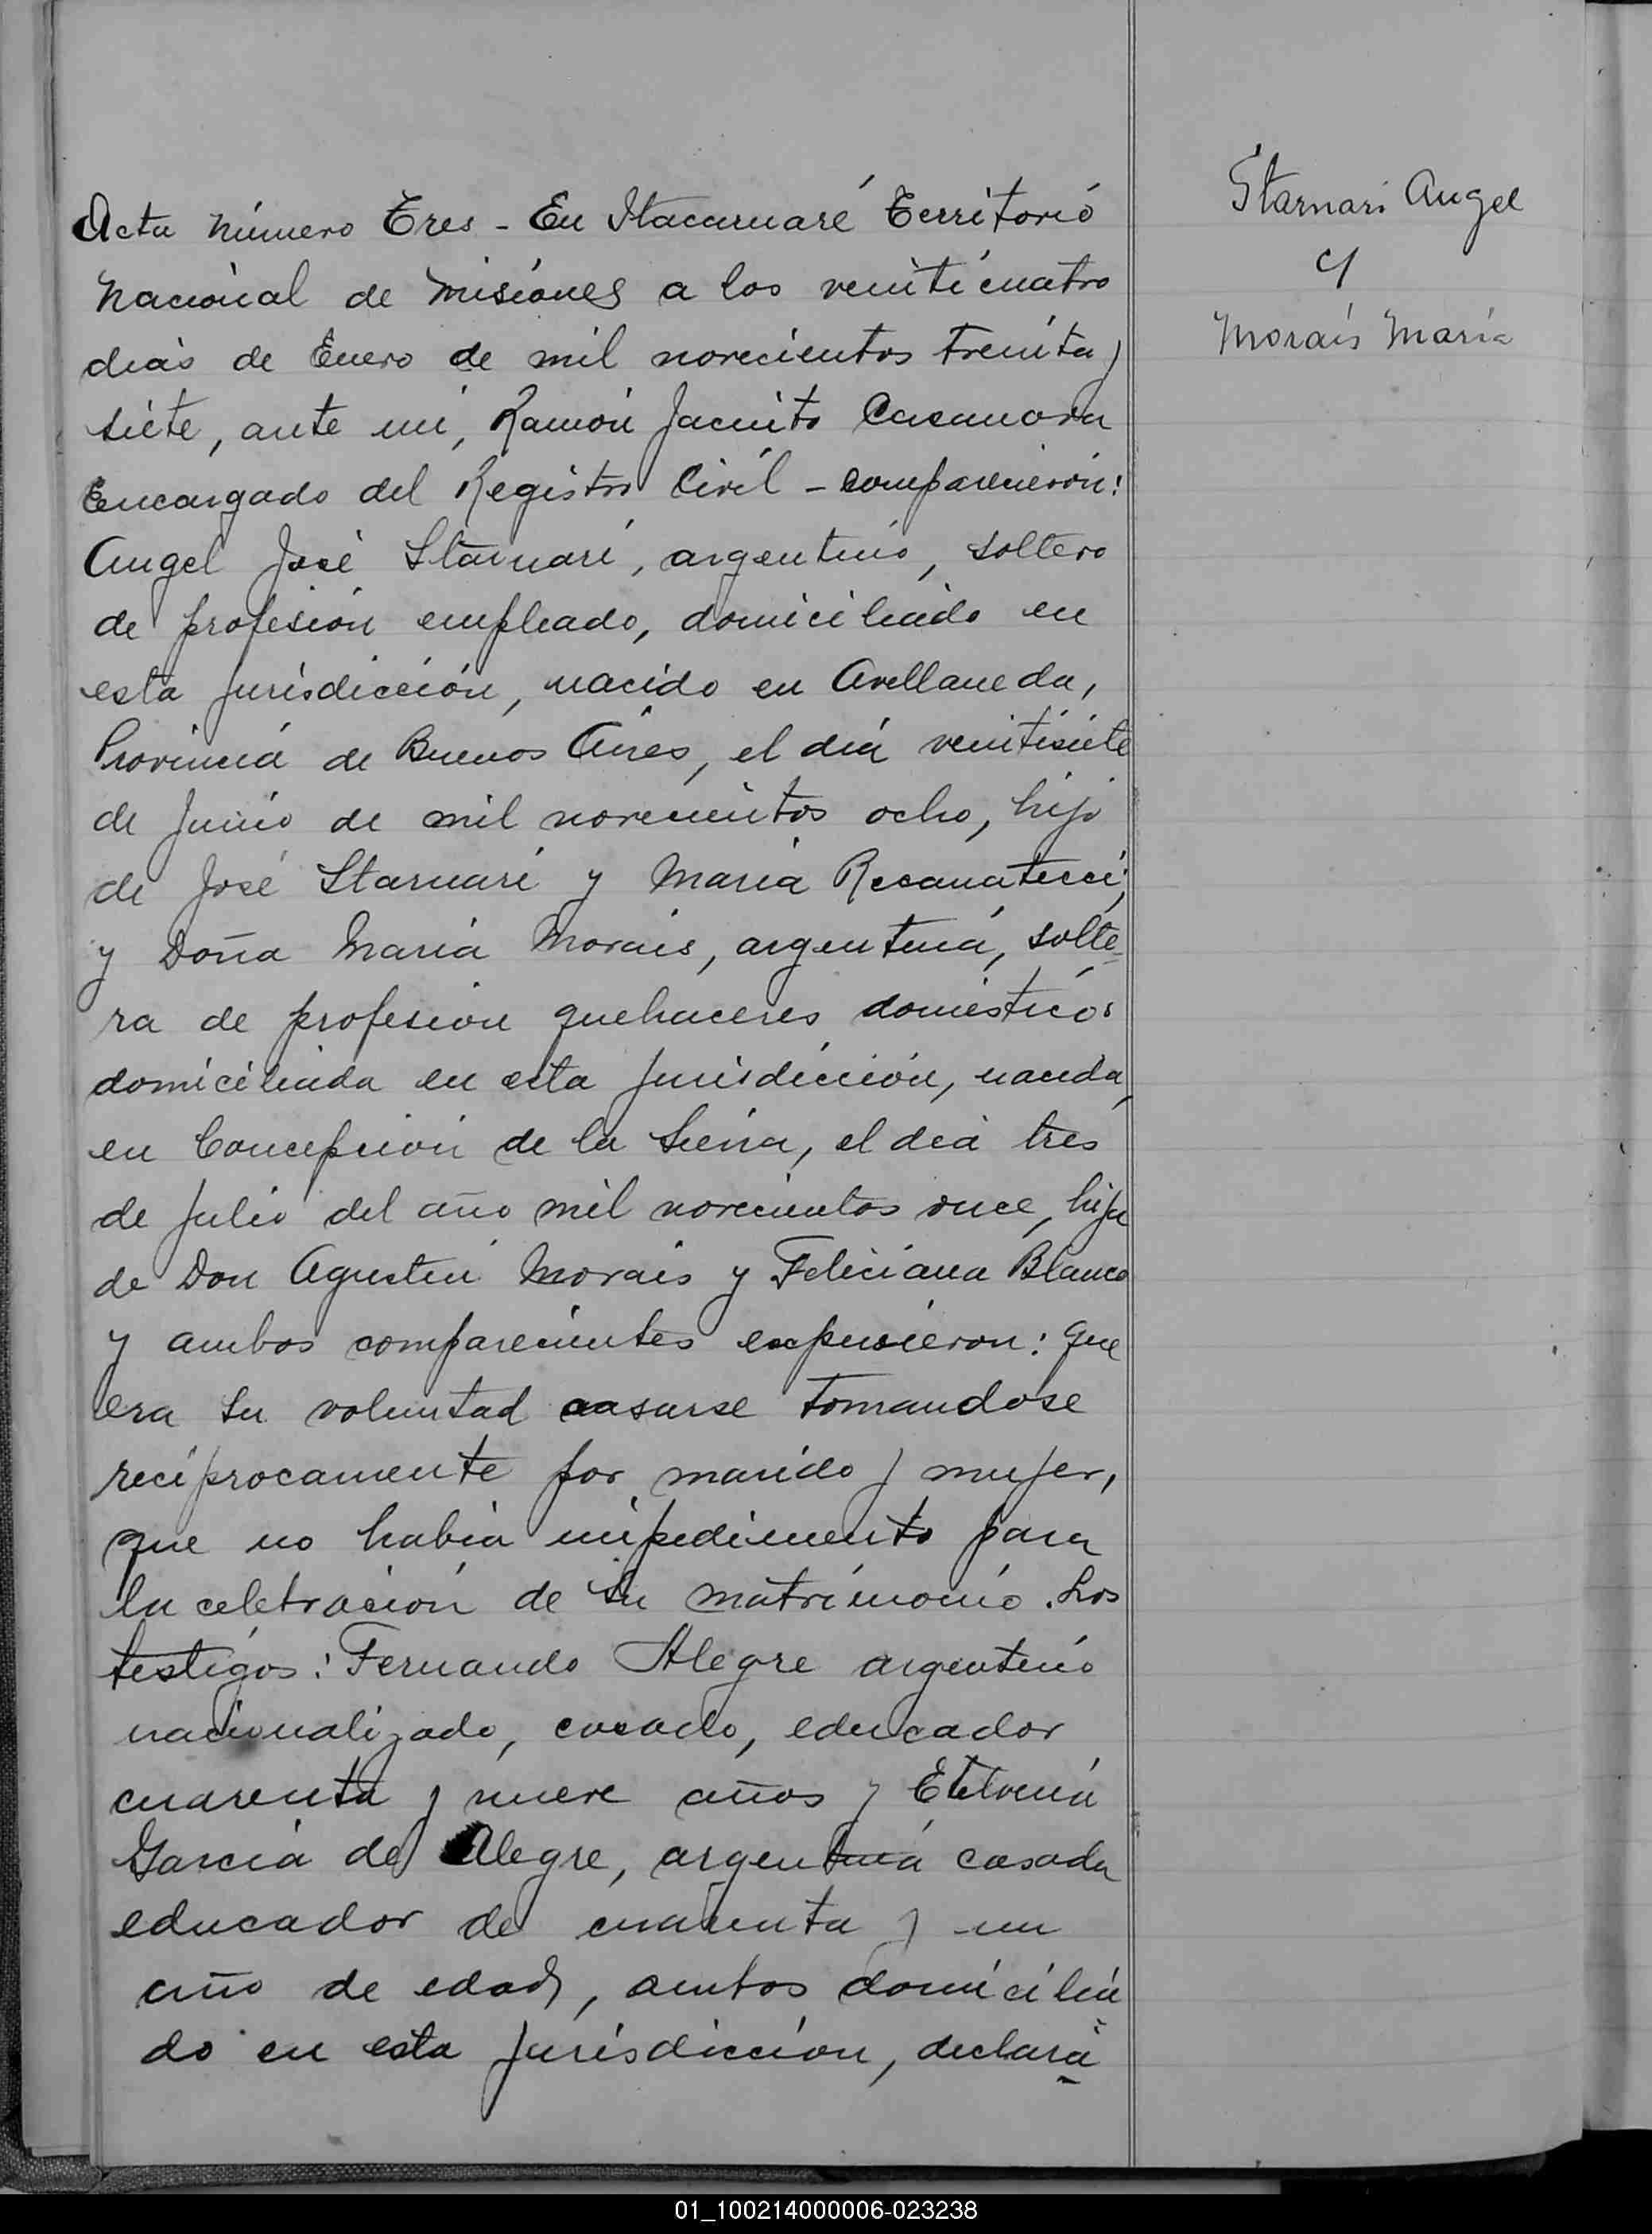 Acta número Tres - En Itacaruaré Territorio
Nacional de Misiones a los veinticuatro
dias de Enero de mil novecientos treinta y
siete, ante mi, Ramón Jacinto Casanova
Encargado del Registro Civil - comparecieron:
Angel José Starnari, argentino, soltero
de profesión empleado, domiciliado en
esta jurisdicción, nacido en Avellaneda,
Provincia de Buenos Aires, el día veintisiete
de Junio de mil novecientos ocho, hijo
de José Starnari y Maria Recanatecci,
y Doña Maria Morais, argentina, solte-
ra de profesion quehaceres domésticos
domiciliada en esta jurisdicción, nacida,
en Concepción de la Sierra, el dia tres
de Julio del año mil novecientos once, hija
de Don Agustin Morais y Feliciana Blanco
y ambos comparecientes expusieron: que
era su voluntad casarse tomandose
reciprocamente por marido y mujer,
que no habia impedimento para
la celebración de su matrimonio. Los
testigos: Fernando Alegre argentino
nacionalizado, casado, educador
cuarenta y nueve años y Etelvina
Garcia de Alegre, argentina casada
educador de cuarenta y un
año de edad, ambos domicilia
do en esta jurisdicción, declara-
Starnari Angel
y
Morais Maria
01_100214000006-023238